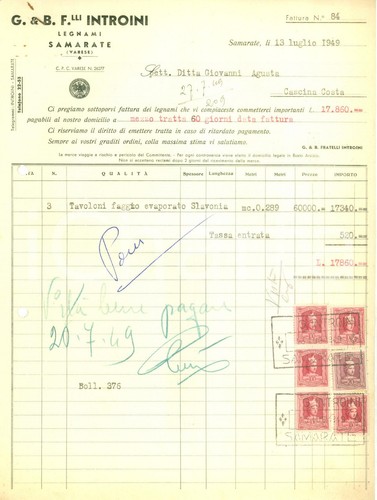 G. & B. F.LLI INTROINI
LEGNAMI
SAMARATE
(VARESE)
C.P.C. VARESE N. 26277
Telefono 25-52
Fattura N.° 84
Samarate, li 13 luglio 1949
Spett. Ditta Giovanni Agusta
27-7-949
Cascina Costa
Ci pregiamo sottoporvi fattura dei legnami che vi compiaceste commetterci importanti L. 17.860.==
pagabili al nostro domicilio a mezzo tratta 60 giorni data fattura
Ci riserviamo il diritto di emettere tratta in caso di ritardato pagamento.
Sempre ai vostri graditi ordini, colla massima stima vi salutiamo.
G. & B. FRATELLI INTROINI
La merce viaggia a rischio e pericolo del Committente. - Per ogni controversia viene eletto il domicilio legale in Busto Arsizio.
Non si accettano reclami dopo 8 giorni dal ricevimento della merce.
N. QUALITÀ Spessore Lunghezza Metri Prezzo IMPORTO
3 Tavoloni faggio evaporato Slavonia mc.0.289 60000.= 17340.==
Tassa entrata 520.==
L. 17860.==
bene pagare
20.7.49
Boll. 376
SAMARATE
SAMARATE